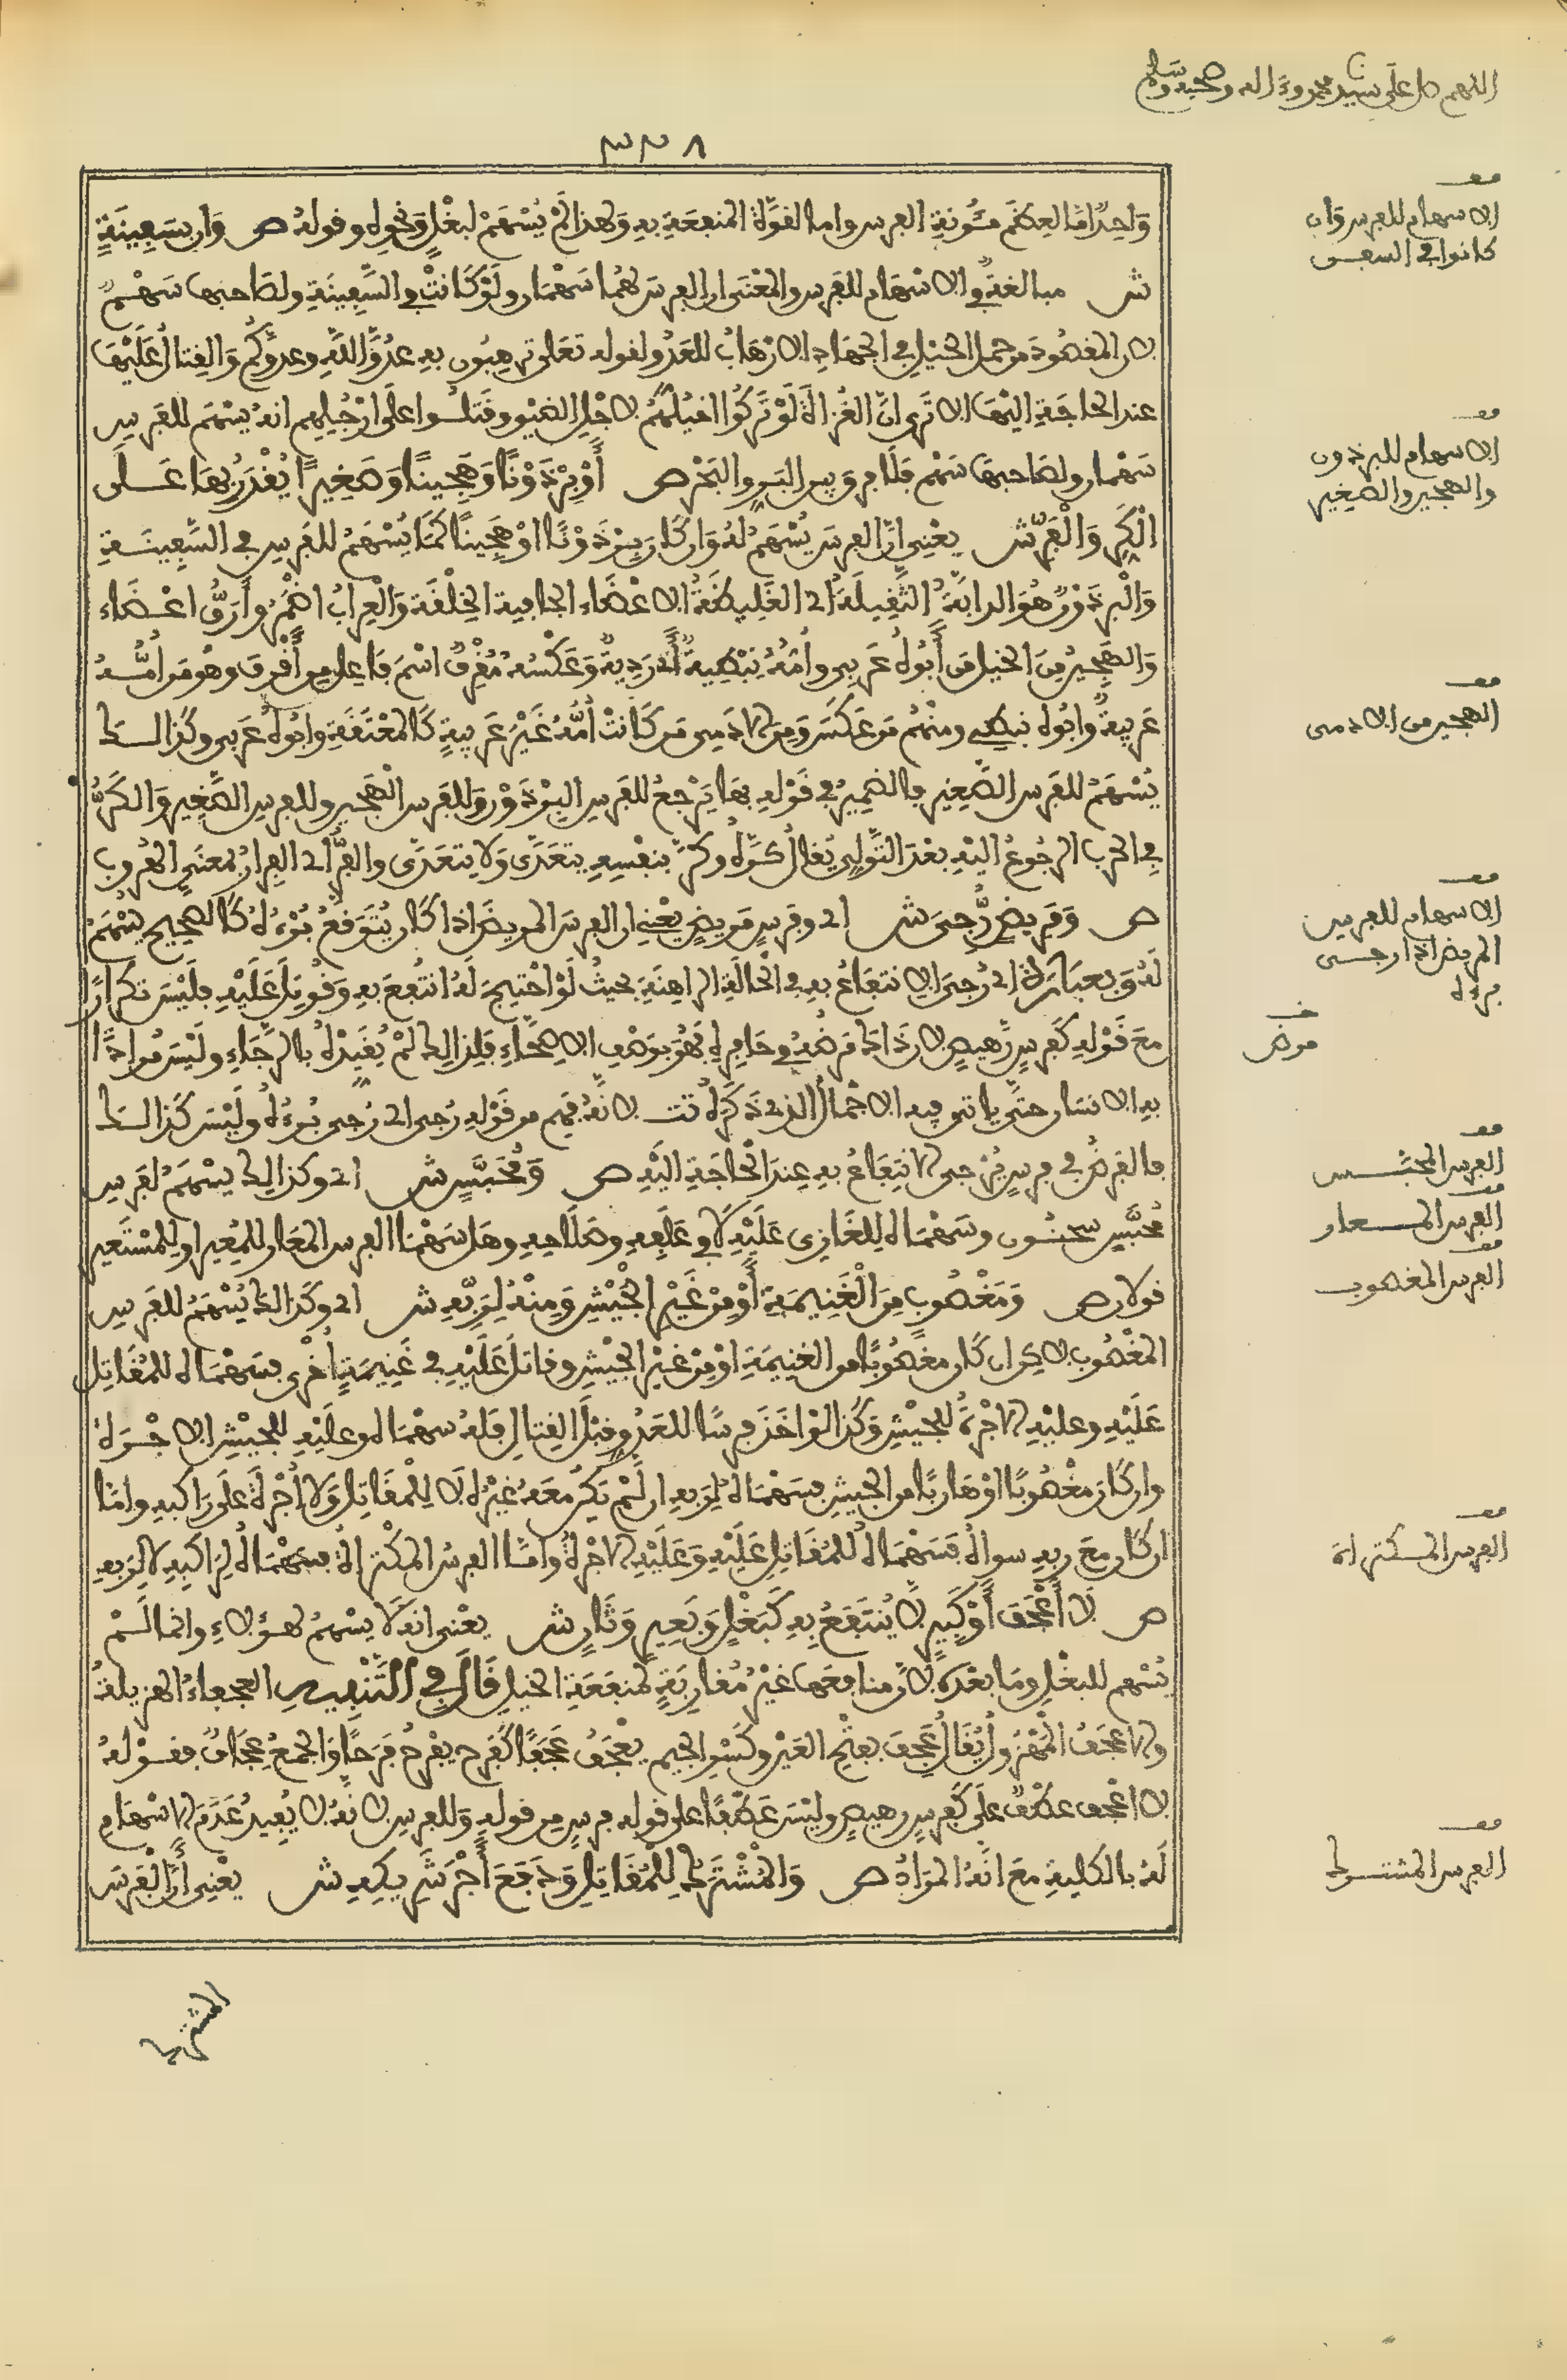 اللهم صل على سيدنا محمد وءاله وصحبه وسلم
٣٣٨
وَاحِدٌ اما لعظم مئونة الفرس واما لقوة المنفعة به ولهذا لم يسهم لبغل ونحوه وقوله ص وان بسفينة
ش مبالغة في الاسهام للفرس والمعنى ان الفرس لهما سهمان ولو كانت في السفينة ولصاحبها سهم
لان المقصود من حمل الخيل في الجهاد الارهاب للعدو لقوله تعلى ترهبون به عدو الله وعدوكم والقتال عليها
عند الحاجة اليها الا ترى ان الغزاة لو تركوا خيلهم لاجل الضيق وقاتلوا على ارجلهم انه يسهم للفرس
سهمان ولصاحبها سهم فلا فرق بين البر والبحر ص أو برذونا وهجينا وصغيرا يقدر بها على
الكر والفر ش يعني ان الفرس يسهم له وان كان برذونا او هجينا كما يسهم للفرس في السفينة
والبرذون هو الدابة الثقيلة اي الغليظة الاعضاء الجافية الخلقة والعراب اضمر وأرق اعضاء
والهجين من الخيل من أبوه عربي وأمه نبطية أي ردية وعكسه مقرف اسم فاعل من أقرف وهو من امه
عربية وابوه نبطي ومنهم من عكس ومن الادمي من كانت أمه غير عربية كالمعتقة وابوه عربي وكذالك
يسهم للفرس الصغير فالضمير في قوله بها يرجع للفرس البرذون وللفرس الهجين وللفرس الصغير والكر
في الحرب الرجوع اليه بعد التولي يقال كره وكر بنفسه يتعدى ولا يتعدى والفر اي الفرار بمعنى الهروب
ص ومريض رجي ش اي وفرس مريض يعني ان الفرس المريض اذا كان يتوقع برؤه كالصحيح يسهم
له وبعبارة اي رجي الانتفاع به في الحالة الراهنة بحيث لو احتيج له انتفع به وقوتل عليه فليس تكرارا
مع قوله كفرس رهيص لان ذاك مرضه في حافره فهو بوصف الاصحاء فلذالك لم يقيده بالرجاء وليس مرادا
به الانسان حتى ياتي فيه الاجمال الذي ذكره تت لانه فهم من قوله رجي اي رجي برؤه وليس كذالك
فالفرض في فرس يرجى الانتفاع به عند الحاجة اليه ص ومحبس ش اي وكذالك يسهم لفرس
محبس سحنون وسهماه للغازي عليه لا في علفه وصلاحه وهل سهما الفرس المعار للمعير او للمستعير
قولان ص ومغصوب من الغنيمة أو من غير الجيش ومنه لربه ش اي وكذالك يسهم للفرس
المغصوب لاكن ان كان مغصوبا من الغنيمة او من غير الجيش وقاتل عليه في غنيمة أخرى فسهماه للمقاتل
عليه وعليه الاجرة للجيش وكذا لو اخذ فرسا للعدو قبل القتال فله سهماه وعليه للجيش الاجرة
وان كان مغصوبا او هاربا من الجيش فسهماه لربه ان لم يكن معه غيره لا للمقاتل ولا أجرة على راكبه واما
ان كان مع ربه سواه فسهماه للمقاتل عليه وعليه الاجرة واما الفرس المكتراة فسهماه لراكبه لا لربه
ص لا أعجف أو كبير لا ينتفع به كبغل وبعير وثان ش يعني انه لا يسهم لهؤلاء وانما لم
يسهم للبغل وما بعده لان منافعها غير مقاربة لمنفعة الخيل قال في التنبيه العجفاء الهزيلة
والاعجف المهزول يقال عجف بفتح العين وكسر الجيم يعجف عجفا كفرح يفرح فرحا والجمع عجاف فقوله
لا اعجف عطف على كفرس رهيص وليس عطفا على قوله فرس من قوله وللفرس لانه لا يفيد عدم الاسهام
له بالكلية مع انه المراد ص والمشترك للمقاتل ودفع أجر شريكه ش يعني أن الفرس
قف
الاسهام للفرس وان
كانوا في السفن
قف
الاسهام للبرذون
والهجين والصغير
قف
الهجين من الادمى
قف
الاسهام للفرس
المريض اذا رجى
برءه
مرض
قف
الفرس المحبس
قف
الفرس المعار
قف
الفرس المغصوب
قف
الفرس المكتراة
قف
الفرس المشترك
المشترك